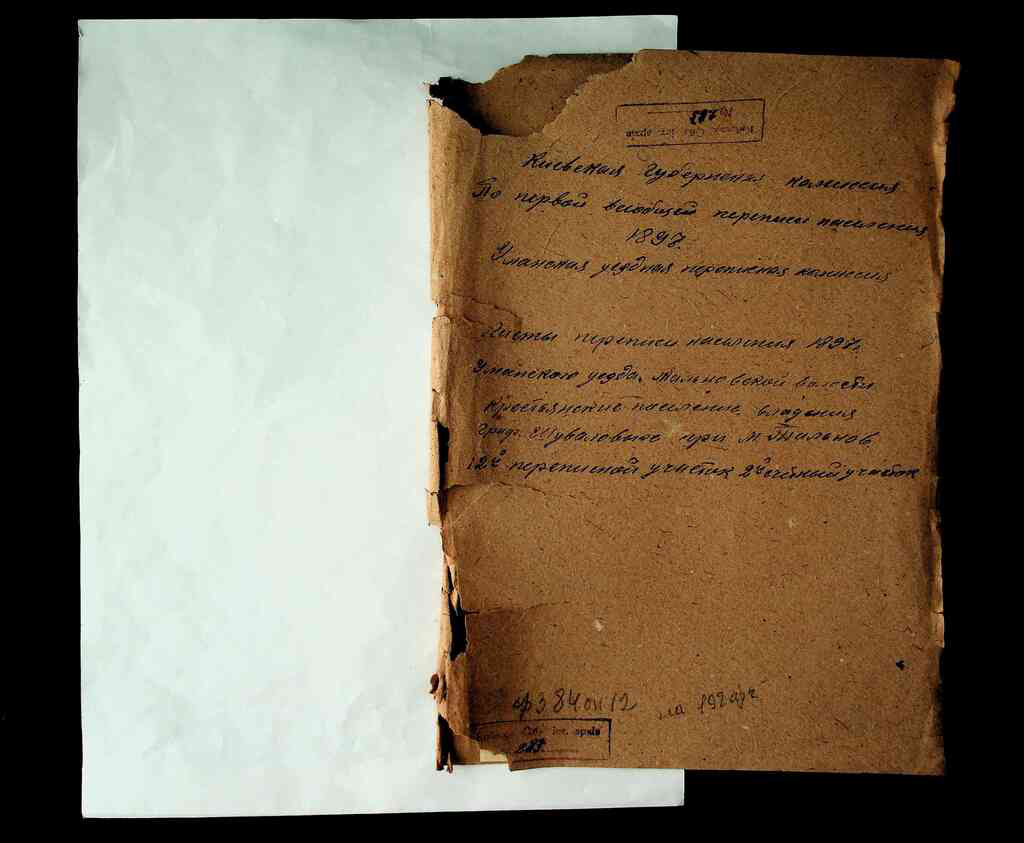 № 283
Київськ. Обл. іст. архів
Киевская губернская комиссия
По первой всеобщей переписи населения
1897
Уманская уездная переписная комиссия
Листы переписи населения 1897г.
Уманского уезда, Тальновской волости
крестьянские население владения
Граф. Шуваловых при м. Тальнов
12й переписной участок 2й счетный участок
ф 384 оп 12
на 192
Обл. іст. архів
283